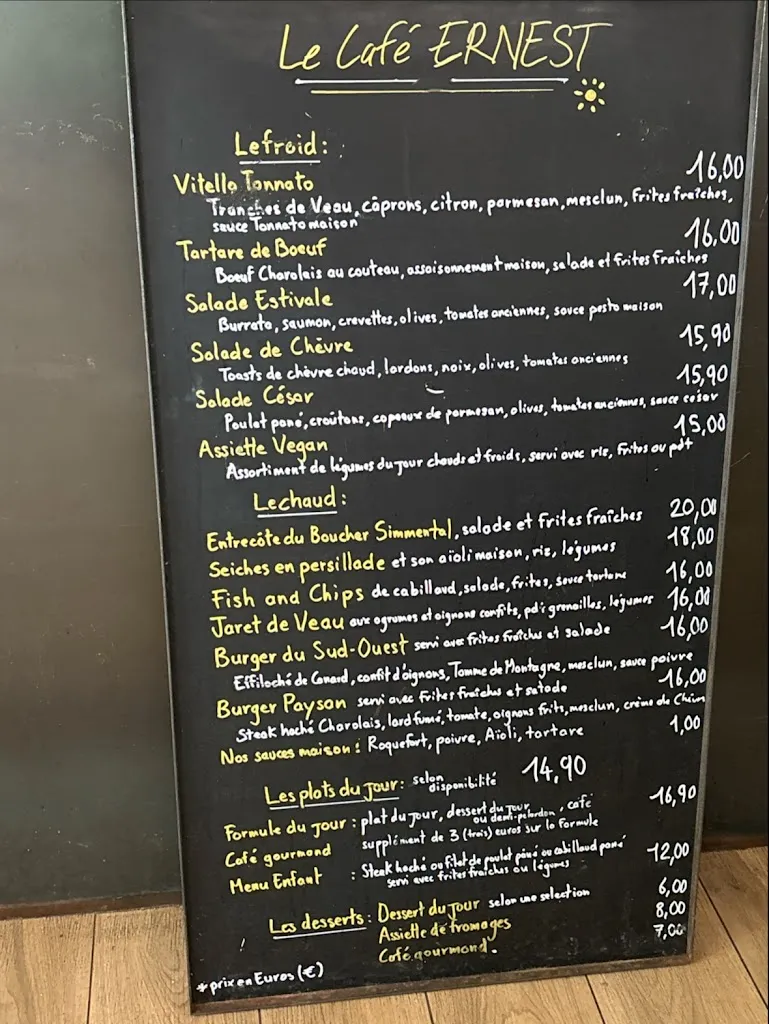 Le Café ERNEST
Le froid :
Vitello Tonnato 16,00
Tranches de Veau, câprons, citron, parmesan, mesclun, Frites fraîches,
sauce Tonnato maison
Tartare de Boeuf 16,00
Boeuf Charolais au couteau, assaisonnement maison, salade et frites Fraîches
Salade Estivale 17,00
Burrata, saumon, crevettes, olives, tomates anciennes, sauce pesto maison
Salade de Chèvre 15,90
Toasts de chèvre chaud, lardons, noix, olives, tomates anciennes
Salade César 15,90
Poulet pané, croûtons, copeaux de parmesan, olives, tomates anciennes, sauce césar
Assiette Vegan 15,00
Assortiment de légumes du jour chauds et froids, servi avec riz, Frites ou pdt
Le chaud :
Entrecôte du Boucher Simmental, salade et frites fraîches 20,00
Seiches en persillade et son aïoli maison, riz, légumes 18,00
Fish and Chips de cabillaud, salade, frites, sauce tartare 16,00
Jaret de Veau aux agrumes et oignons confits, pdt grenailles, légumes 16,00
Burger du Sud-Ouest servi avec frites fraîches et salade 16,00
Effiloché de Canard, confit d'oignons, Tomme de Montagne, mesclun, sauce poivre
Burger Paysan servi avec Frites fraîches et salade 16,00
Steak haché Charolais, lard fumé, tomate, oignons frits, mesclun, crème de Chèvre
Nos sauces maison : Roquefort, poivre, Aïoli, tartare 1,00
Les plats du jour : selon disponibilité 14,90
Formule du jour : plat du jour, dessert du jour ou demi-pélardon, café 16,90
Café gourmand supplément de 3 (trois) euros sur la Formule
Menu Enfant : Steak haché ou filet de poulet pané ou cabillaud pané 12,00
servi avec frites fraîches ou légumes
Les desserts : Dessert du jour selon une selection 6,00
Assiette de fromages 8,00
Café gourmand. 7,00
* prix en Euros (€)